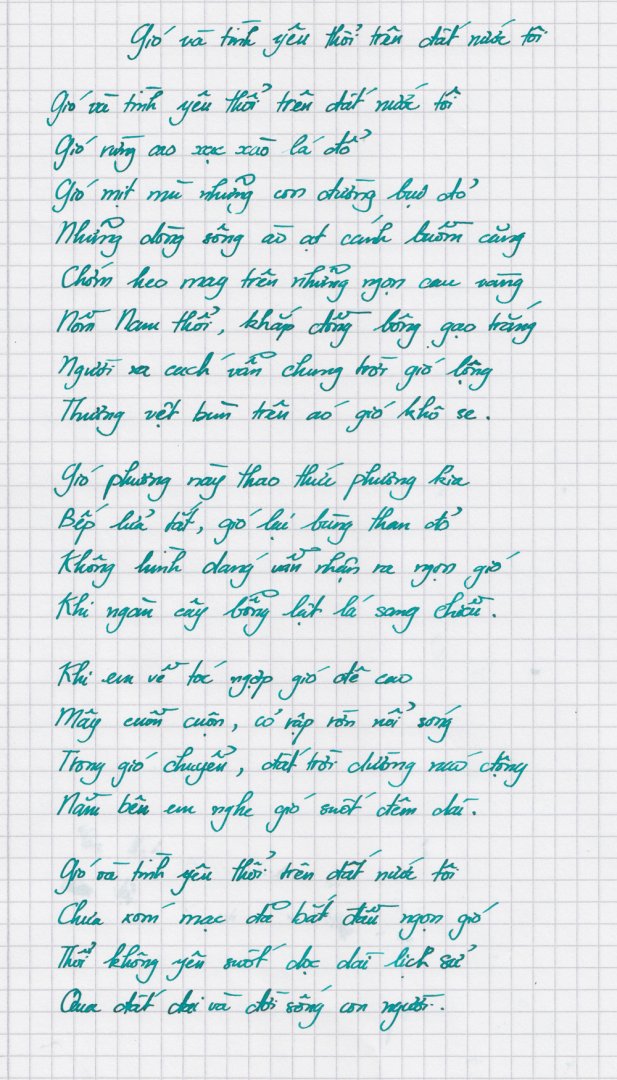 Gió và tình yêu thổi trên đất nước tôi
Gió và tình yêu thổi trên đất nước tôi
Gió rừng cao xạc xào lá đổ
Gió mịt mù những con đường bụi đỏ
Những dòng sông ào ạt cánh buồm căng
Chớm heo may trên những ngọn cau vàng
Nồm Nam thổi, khắp đồng bông gạo trắng
Người xa cách vẫn chung trời gió lộng
Thương vệt bùn trên áo gió khô se.
Gió phương này thao thức phương kia
Bếp lửa tắt, gió lại bùng than đỏ
Không hình dáng vẫn nhận ra ngọn gió
Khi ngàn cây bỗng lật lá sang chiều.
Khi em về tóc ngợp gió đê cao
Mây cuồn cuộn, cỏ rập rờn nổi sóng
Trong gió chuyển, đất trời dường náo động
Nằm bên em nghe gió suốt đêm dài.
Gió và tình yêu thổi trên đất nước tôi
Chưa xóm mạc đã bắt đầu ngọn gió
Thổi không yên suốt dọc dài lịch sử
Qua đất đai và đời sống con người.